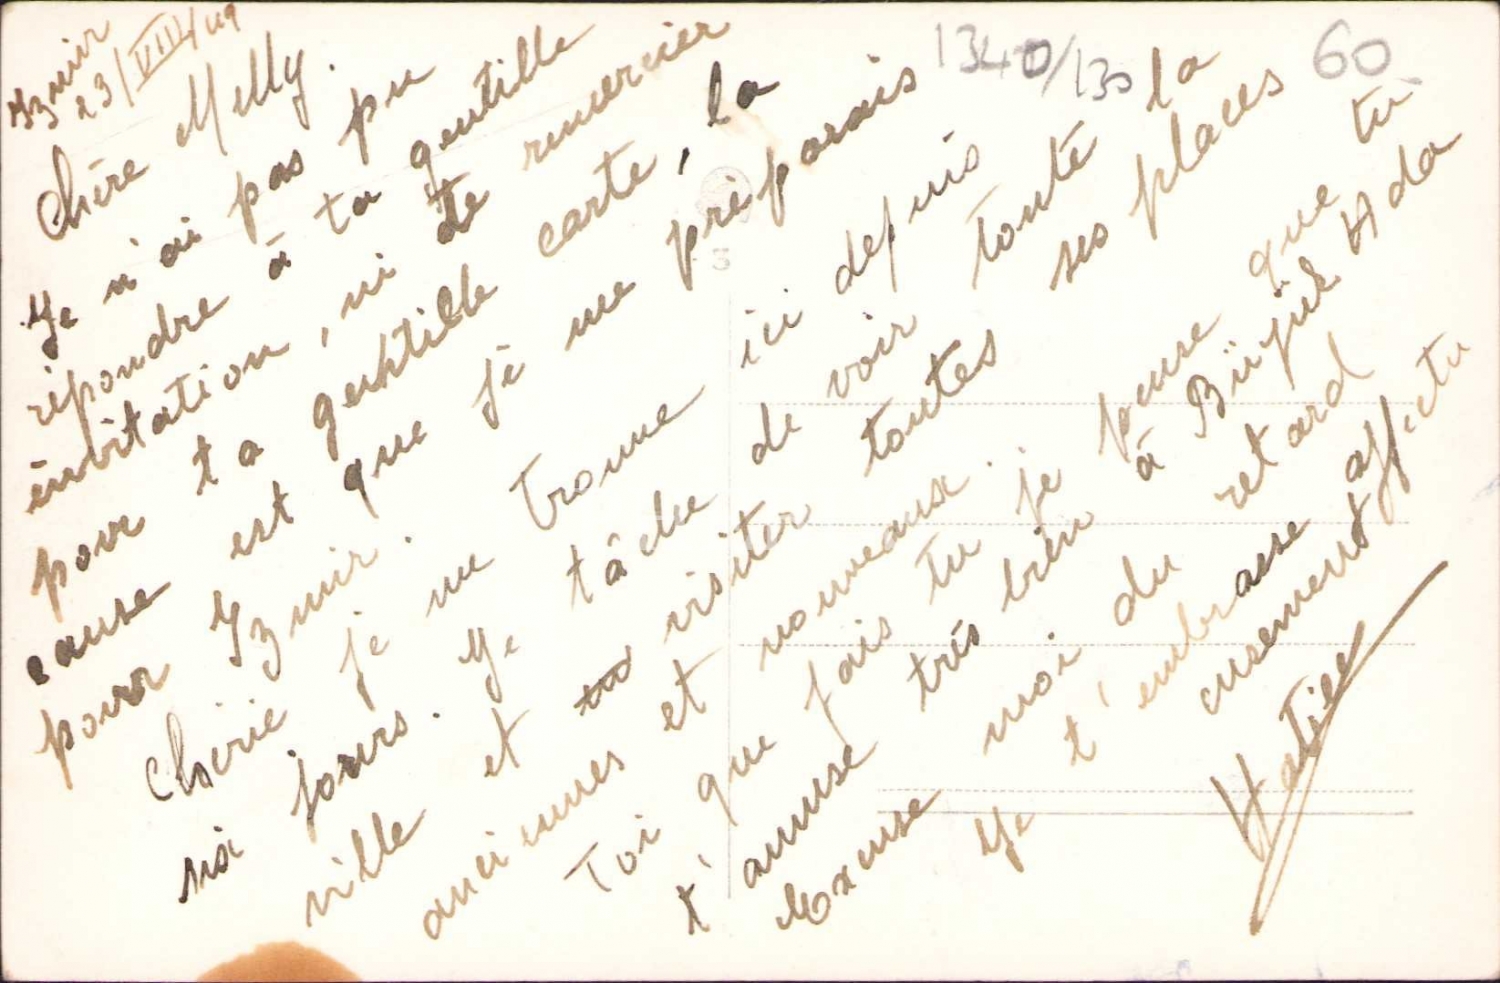 Izmir
23/VIII/49
Chère Melly.
Je n'ai pas pu
répondre à ta gentille
invitation, ni te remercier
pour ta gentille carte, la
cause est que je me préparais
pour Izmir.
Chérie je me trouve ici depuis
six jours. Je tâche de voir toute la
ville et visiter toutes ses places
anciennes et nouveaux.
Toi que fais tu je pense que tu
t'amuse très bien à Büyük Ada
Excuse moi du retard
Je t'embrasse affectu
eusement
Hatice
1340/130
60
3